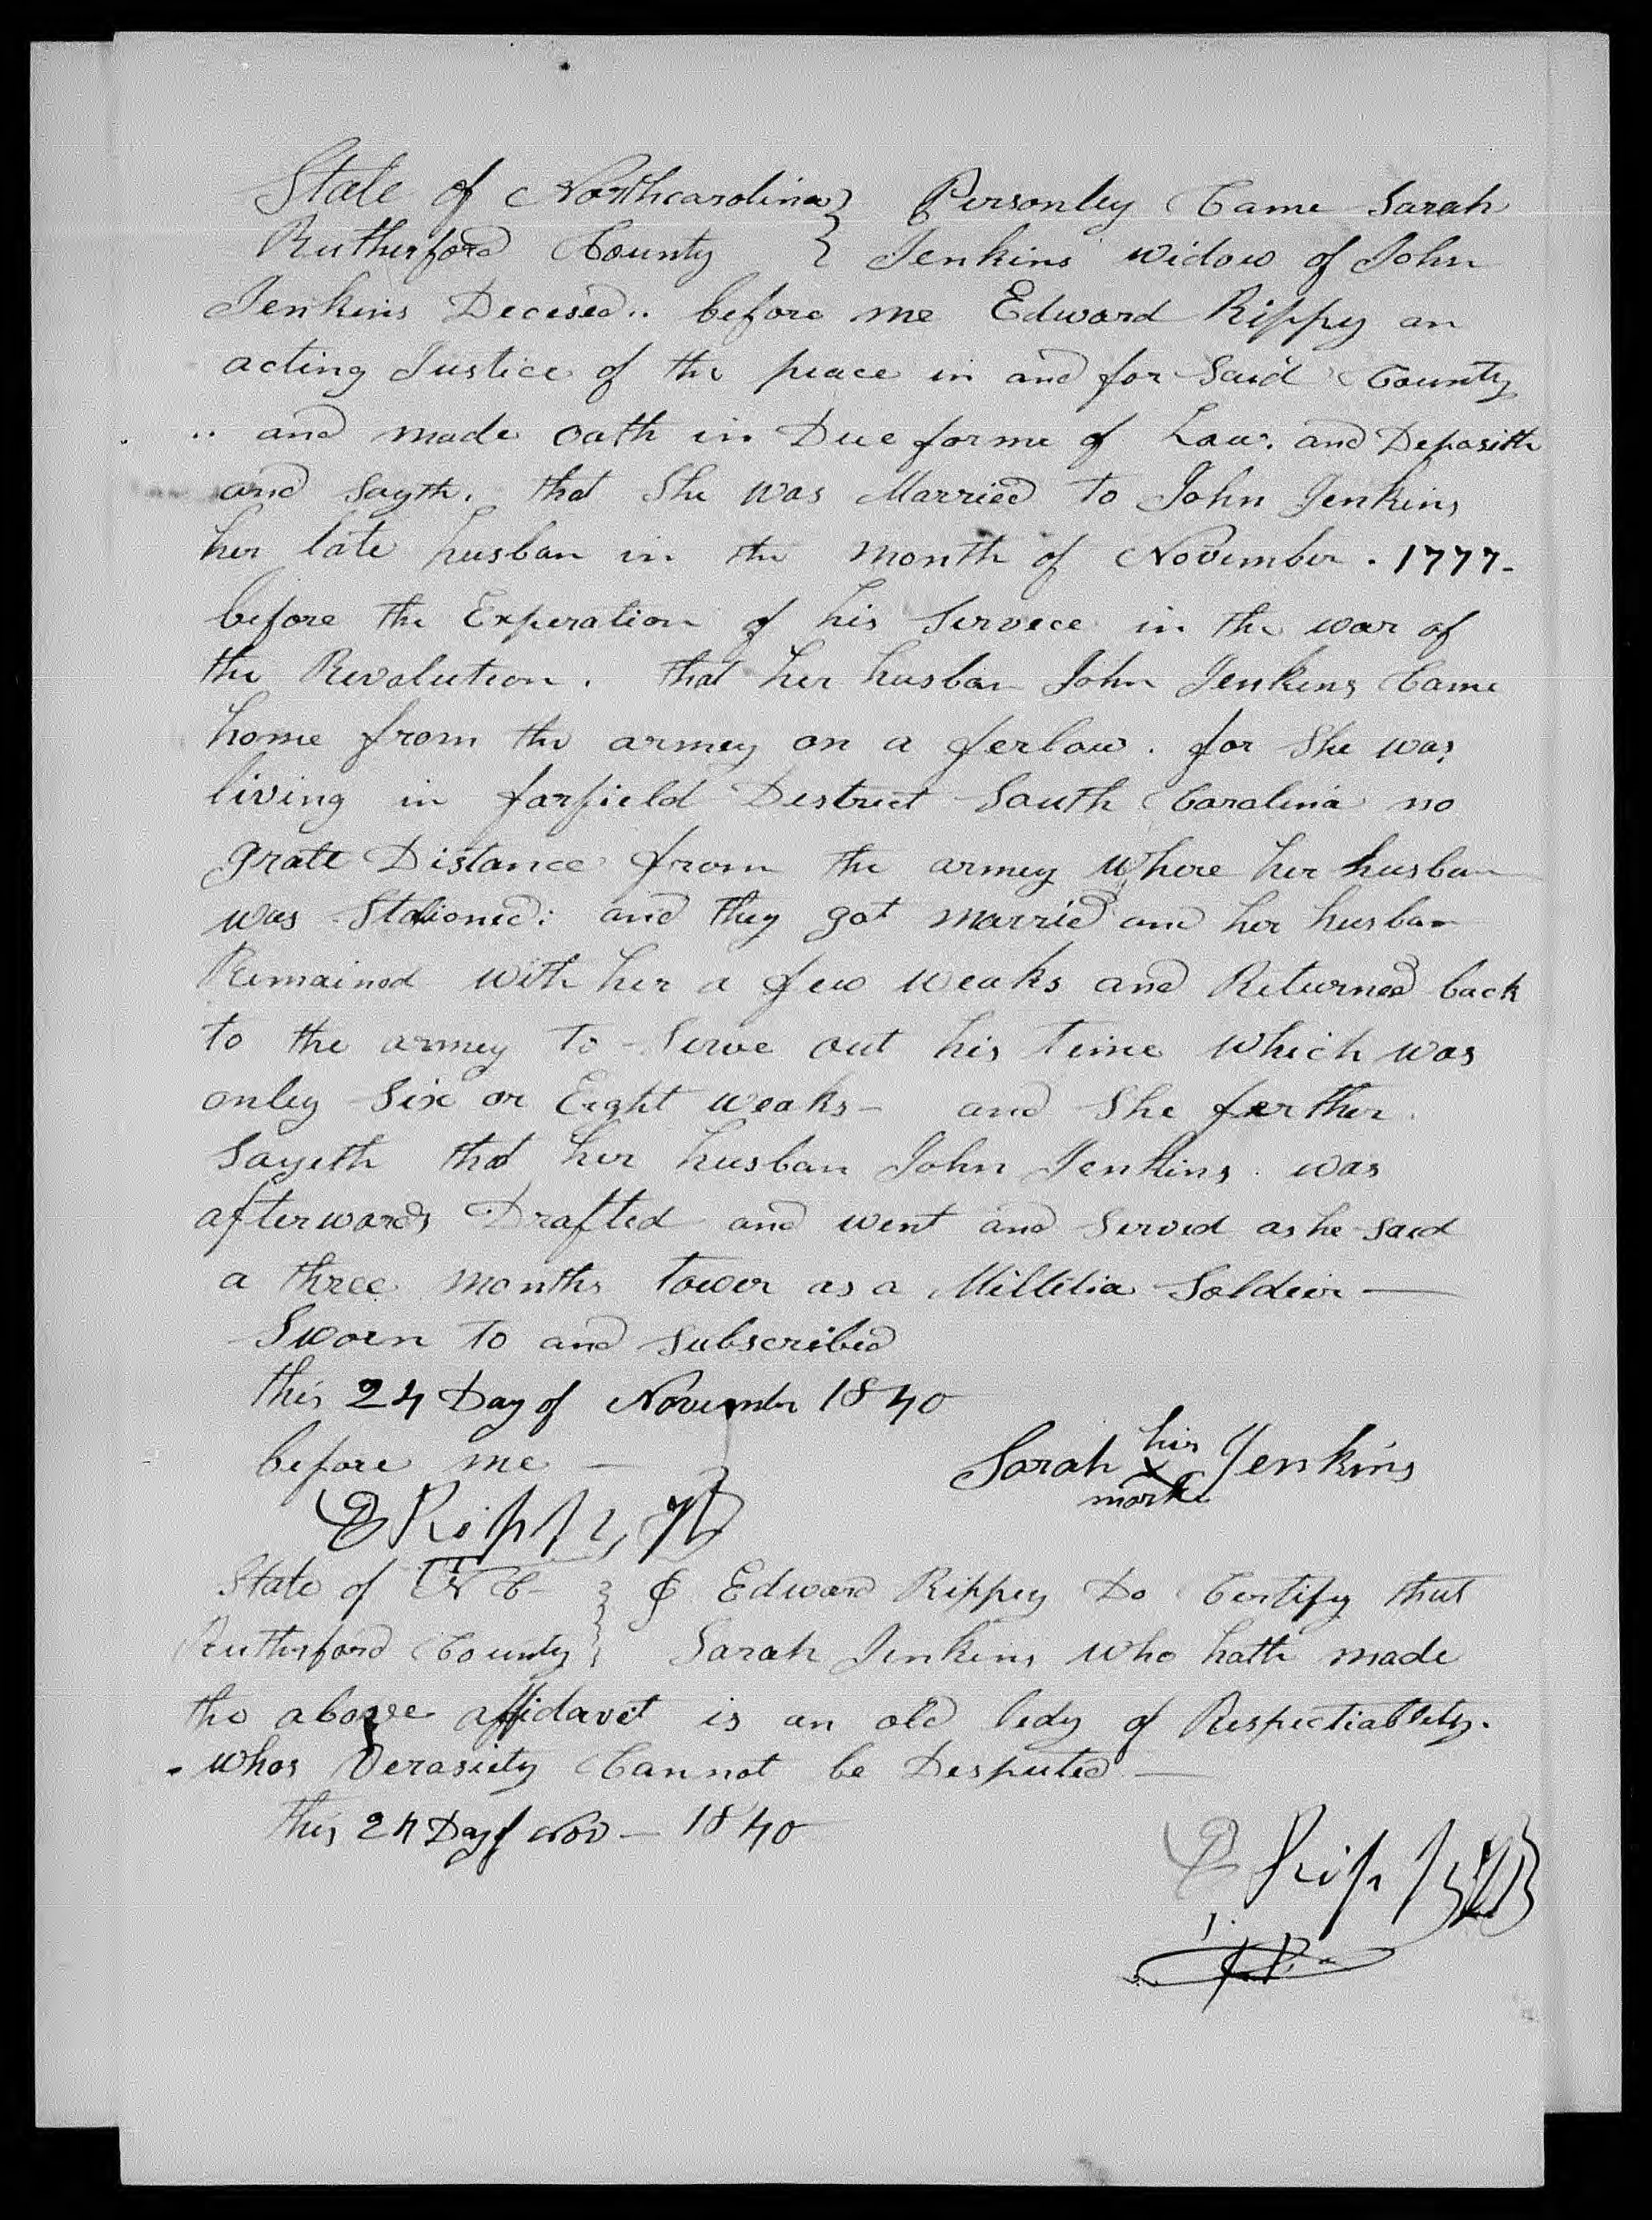 State of Northcarolina } Personley Came Sarah
Rutherford County } Jenkins widow of John
Jenkins Decesed.. before me Edward Rippy an
acting Justice of the peace in and for Said County
.. and made oath in Due forme of Law. and Deposith
and Sayth. that She was Married to John Jenkins
her late husban in the month of November . 1777-
before the Experation of his Servece in the war of
the Revolution . that her husban John Jenkins Came
home from the armey on a ferlow . for She was
living in farfield Destrict South Carolina no
grate Distance from the armey Where her husban
was Stationed: and they got married and her husban
Remained with her a few weaks and Returned back
to the armey to Serve out his time which was
onley Six or Eight weaks - and She ferther
Sayeth that her husban John Jenkins was
afterwards Drafted and went and Served as he Said
a three months tower as a Millitia Soldier —
Sworn to and Subscribed
this 24 Day of November 1840
before me —
Sarah his X mark Jenkins
E Rippy JP
State of N C- } I Edward Rippey Do Certify that
Rutherford County } Sarah Jenkins who hath made
the above affidavit is an old ledy of Respectiability.
whos Verasiety Cannot be Desputed —
this 24 Day of Nov — 1840
E Rippy JP